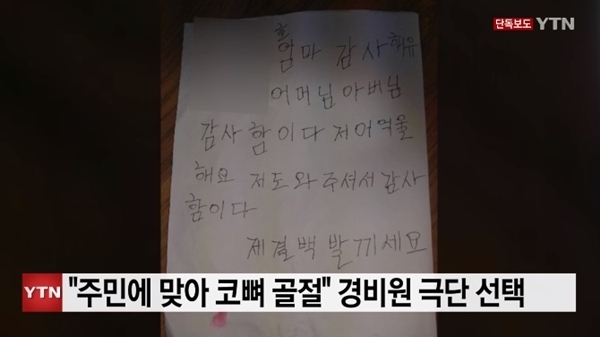 단독보도 YTN
엄마 감사해유
어머님아버님
감사함이다 저어억울
해요 저도와주셔서감사
함이다
제결백발끼세요
YTN "주민에 맞아 코뼈 골절" 경비원 극단 선택